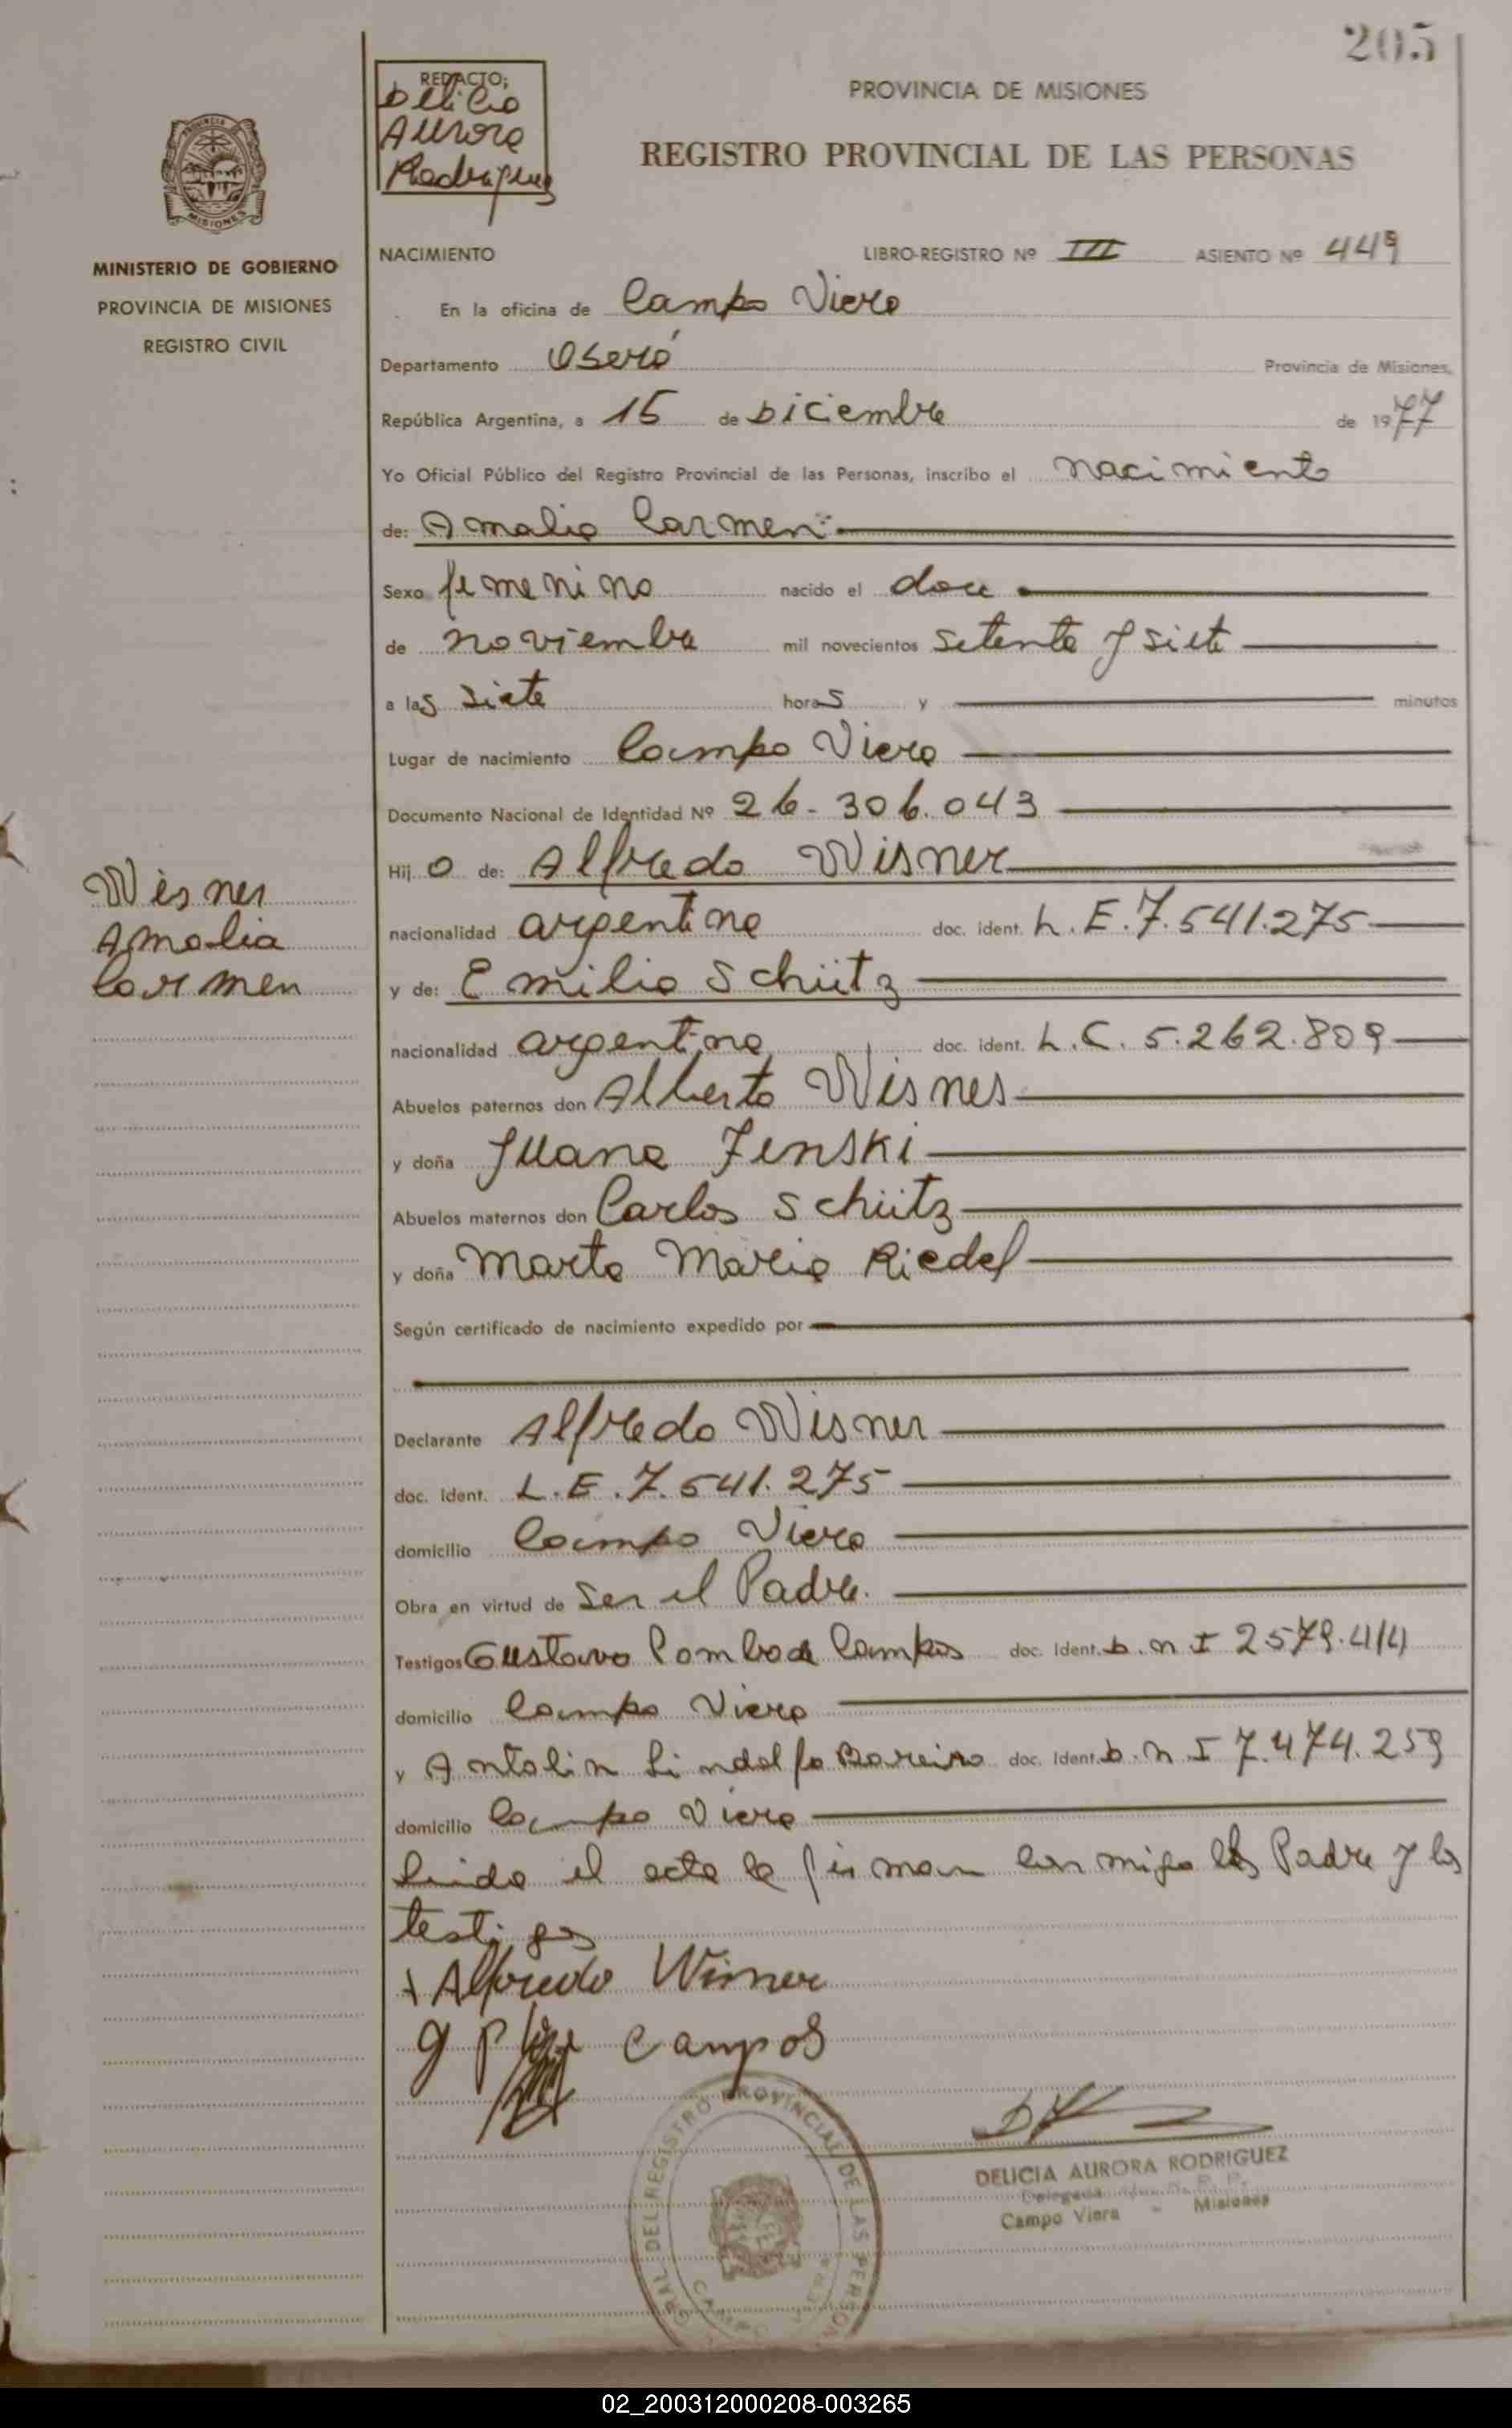 205
REDACTO;
Delicia
Aurora
Rodriguez
PROVINCIA DE MISIONES
REGISTRO PROVINCIAL DE LAS PERSONAS
MISIONES
MINISTERIO DE GOBIERNO
PROVINCIA DE MISIONES
REGISTRO CIVIL
NACIMIENTO LIBRO-REGISTRO Nº III ASIENTO Nº 449
En la oficina de Campo Viera
Departamento Oberá Provincia de Misiones,
República Argentina, a 15 de Diciembre de 1977
Yo Oficial Público del Registro Provincial de las Personas, inscribo el nacimiento
de: Amalia Carmen
Sexo femenino nacido el doce
de noviembre mil novecientos setenta y siete
a las siete horas y minutos
Lugar de nacimiento Campo Viera
Documento Nacional de Identidad Nº 26-306.043
Hij a de: Alfredo Wisner
Wisner
Amalia
Carmen
nacionalidad argentina doc. ident. L.E.7.541.275
y de: Emilia Schütz
nacionalidad argentina doc. ident. L.C. 5.262.809
Abuelos paternos don Alberto Wisner
y doña Juana Zenski
Abuelos maternos don Carlos Schütz
y doña Marta Maria Riedel
Según certificado de nacimiento expedido por
Declarante Alfredo Wisner
doc. ident. L.E.7.541.275
domicilio Campo Viera
Obra en virtud de ser el Padre.
Testigos Gustavo Pombo de Campos doc. ident. D.N.I 2579.414
domicilio Campo Viera
y Antolin Lindolfo Bareiro doc. ident. D.N.I 7.474.259
domicilio Campo Viera
Leida el acta la firman conmigo el Padre y los
testigos
Alfredo Wisner
g P Campos
DEL REGISTRO PROVINCIAL DE LAS PERSON
DELICIA AURORA RODRIGUEZ
Delegada R. P. P.
Campo Viera - Misiones
02_200312000208-003265